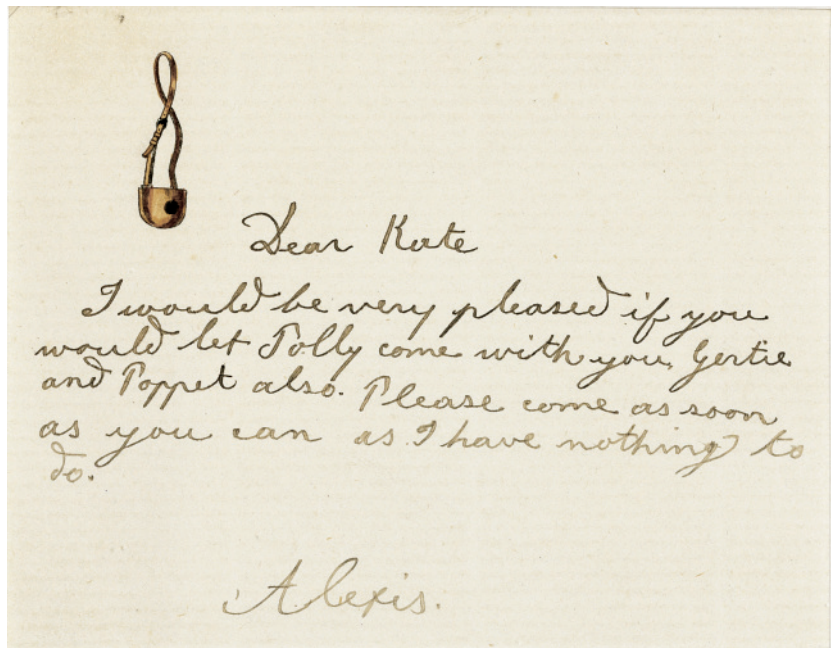 Dear Kate
I would be very pleased if you
would let Polly come with you, Gertie
and Poppet also. Please come as soon
as you can as I have nothing to
do.
Alexis.